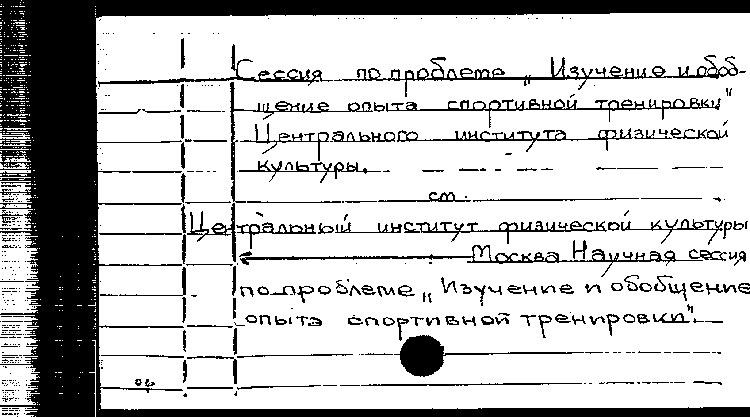 Сессия по проблеме „Изучение и обоб-
щение опыта спортивной тренировки"
Центрального института физической
культуры.
см.
Центральный институт физической культуры
Москва Научная сессия
по проблеме „Изучение и обобщение
опыта спортивной тренировки".